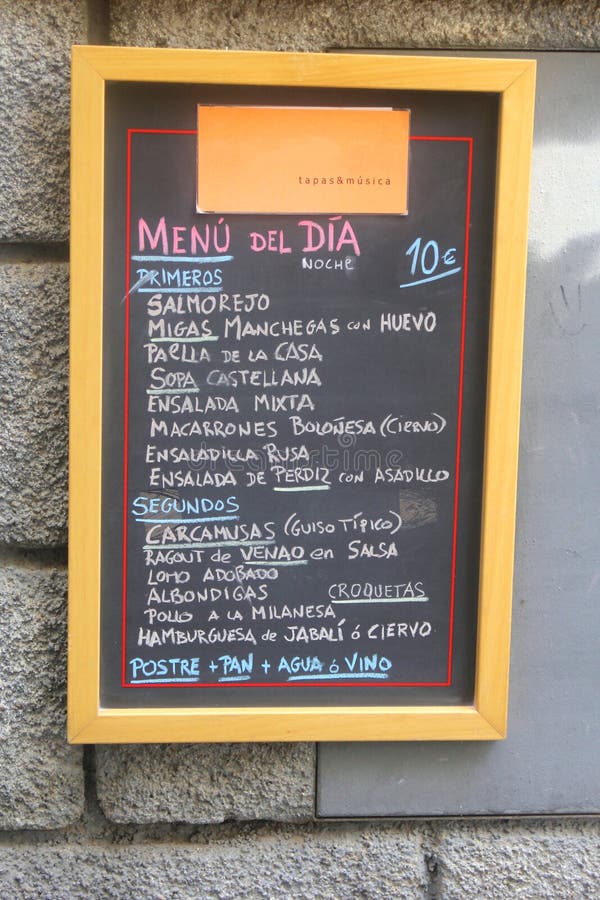 tapas&música
MENÚ DEL DÍA
NOCHE
10€
PRIMEROS
SALMOREJO
MIGAS MANCHEGAS CON HUEVO
PAELLA DE LA CASA
SOPA CASTELLANA
ENSALADA MIXTA
MACARRONES BOLOÑESA (CIERVO)
ENSALADILLA RUSA
ENSALADA DE PERDIZ CON ASADILLO
SEGUNDOS
CARCAMUSAS (GUISO TÍPICO)
RAGOUT de VENAO en SALSA
LOMO ADOBADO
ALBONDIGAS CROQUETAS
POLLO A LA MILANESA
HAMBURGUESA de JABALÍ ó CIERVO
POSTRE + PAN + AGUA ó VINO
dreamstime.com